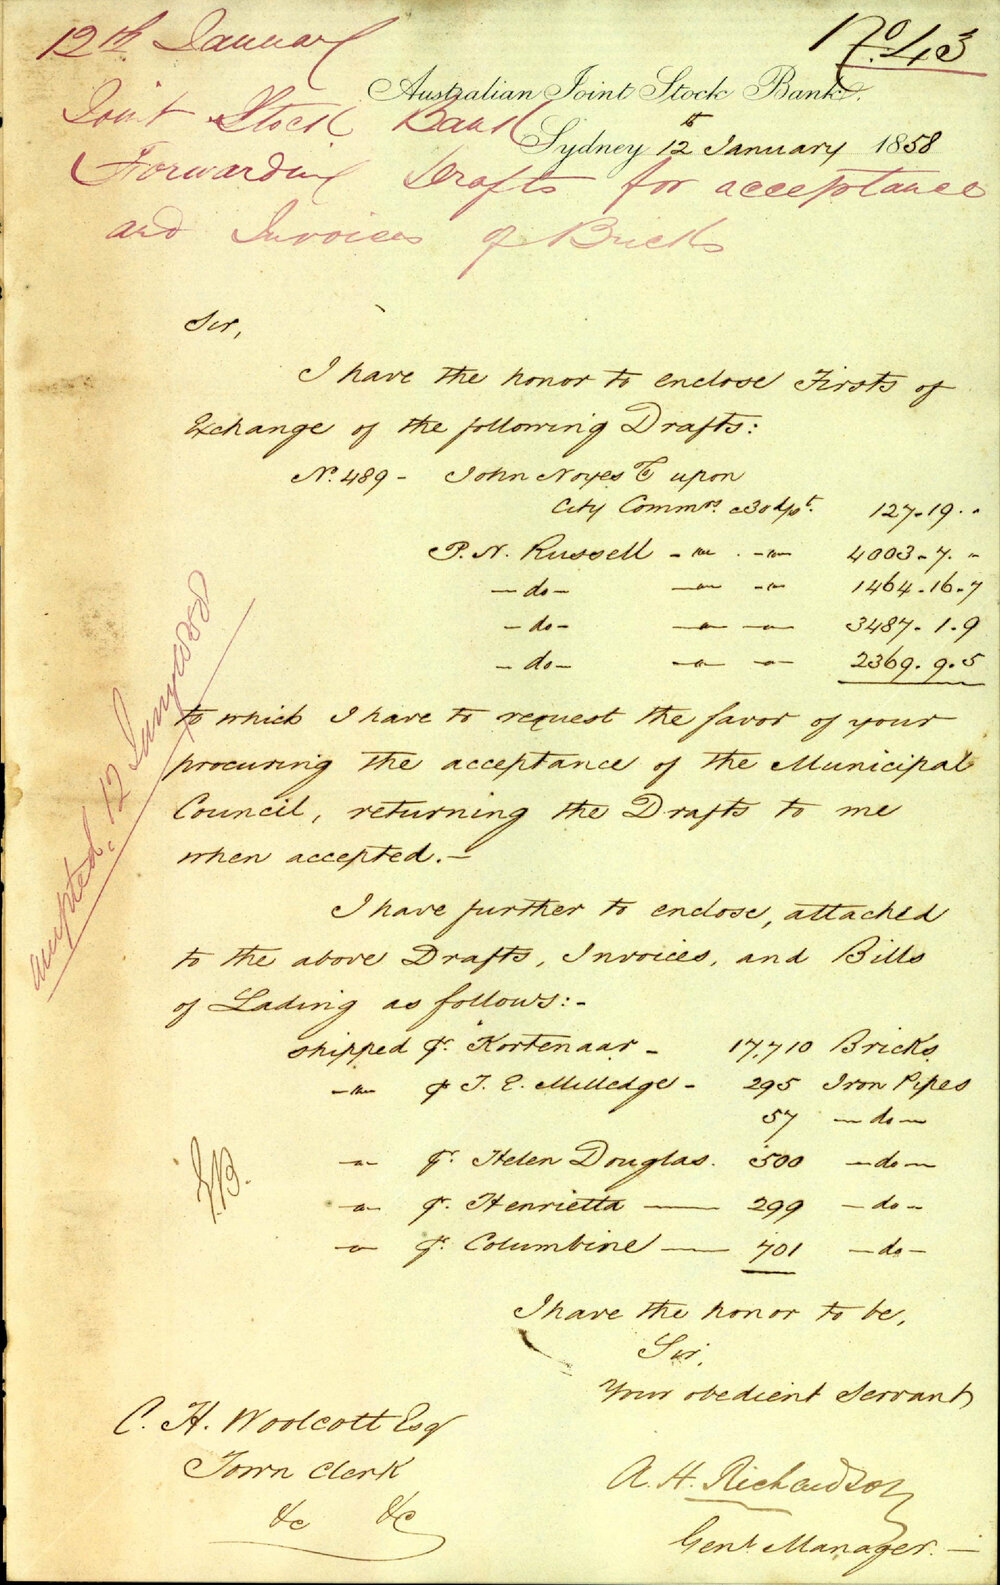 No. 43
12th January
Joint Stock Bank
Forwarding Drafts for acceptance
and Invoices of Bricks
Australian Joint Stock Bank.
Sydney 12th January 1858
Sir,
I have the honor to enclose Firsts of
Exchange of the following Drafts:
No. 489 - John Noyes upon
City Commrs. @30d/st. 127.19. "
P. N. Russell - " - " - 4003-7. "
- do - - " - " - 1464.16.7
- do - - " - " - 3487.1.9
- do - - " - " - 2369.9.5
to which I have to request the favor of your
procuring the acceptance of the Municipal
Council, returning the Drafts to me
when accepted. -
accepted. 12 Jany
I have further to enclose, attached
to the above Drafts, Invoices, and Bills
of Lading as follows: -
shipped pr. Kortenaar - 17,710 Bricks
- " - pr J. E. Milledge - 295 Iron Pipes
57 - do -
- " - pr. Helen Douglas. 500 - do -
- " - pr. Henrietta - 299 - do -
- " - pr. Columbine - 701 - do -
I have the honor to be,
Sir,
Your obedient Servant
C. H. Woolcott Esq
Town Clerk
&c &c
A. H. Richardson
Genl. Manager. -